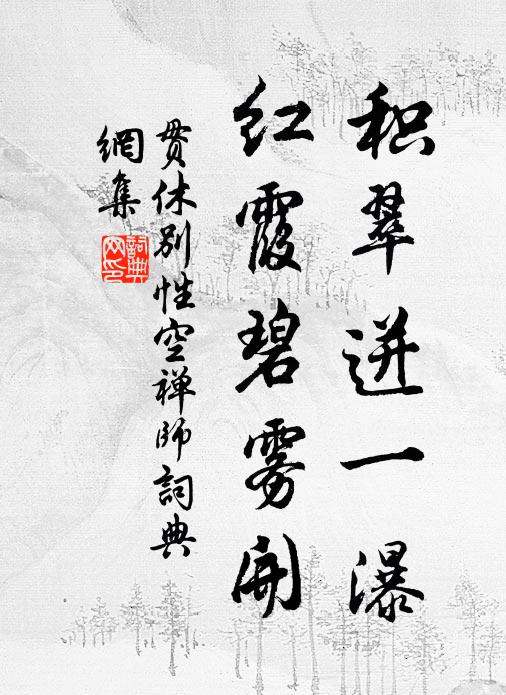 积翠迸一瀑
红霞碧雾开
贯休别性空禅师詞典
網集
詞典
网印